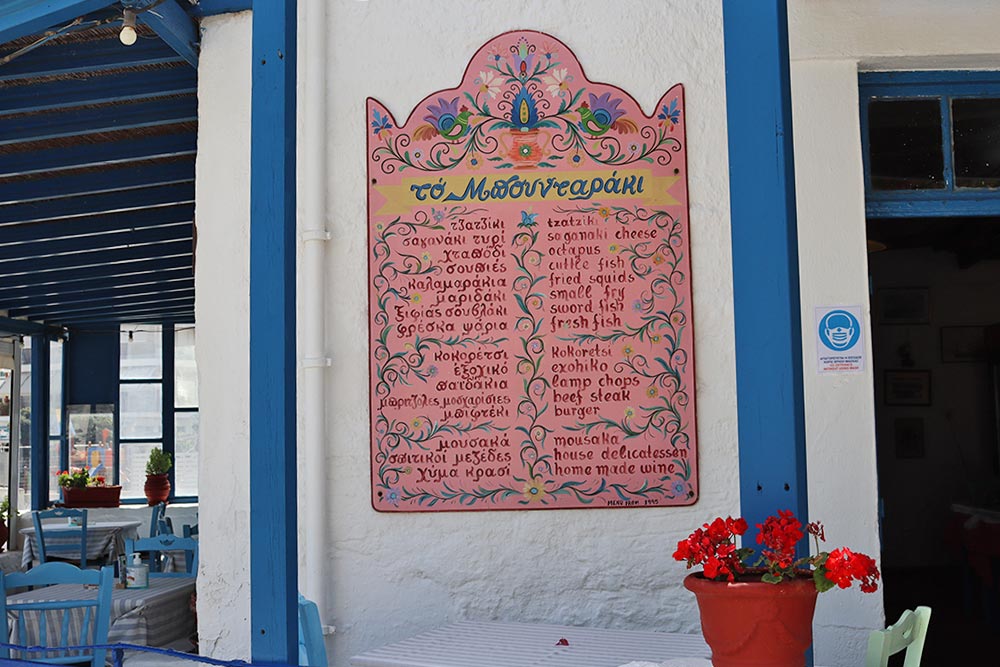 τό Μπουνταράκι
τζατζίκι
σαγανάκι τυρί
χταπόδι
σουπιές
καλαμαράκια
μαριδάκι
ξιφίας σουβλάκι
φρέσκα ψάρια
κοκορέτσι
εξοχικό
παϊδάκια
μπριτζόλες μοσχαρίσιες
μπιφτέκι
μουσακά
σπιτικοί μεζέδες
χύμα κρασί
tzatziki
saganaki cheese
octapus
cuttle fish
fried squids
small fry
sword fish
fresh fish
kokoretsi
exohiko
lamp chops
beef steak
burger
mousaka
house delicatessen
home made wine
MENU FROM 1995